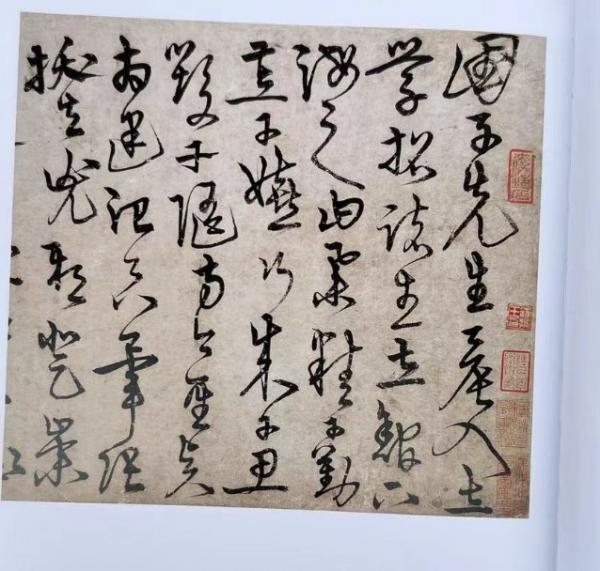 國子先生晨入太
學招諸生立館下
誨之曰業精于勤
荒于嬉行成于思
毀于隨方今聖賢
相逢治具畢張
拔去兇邪登崇